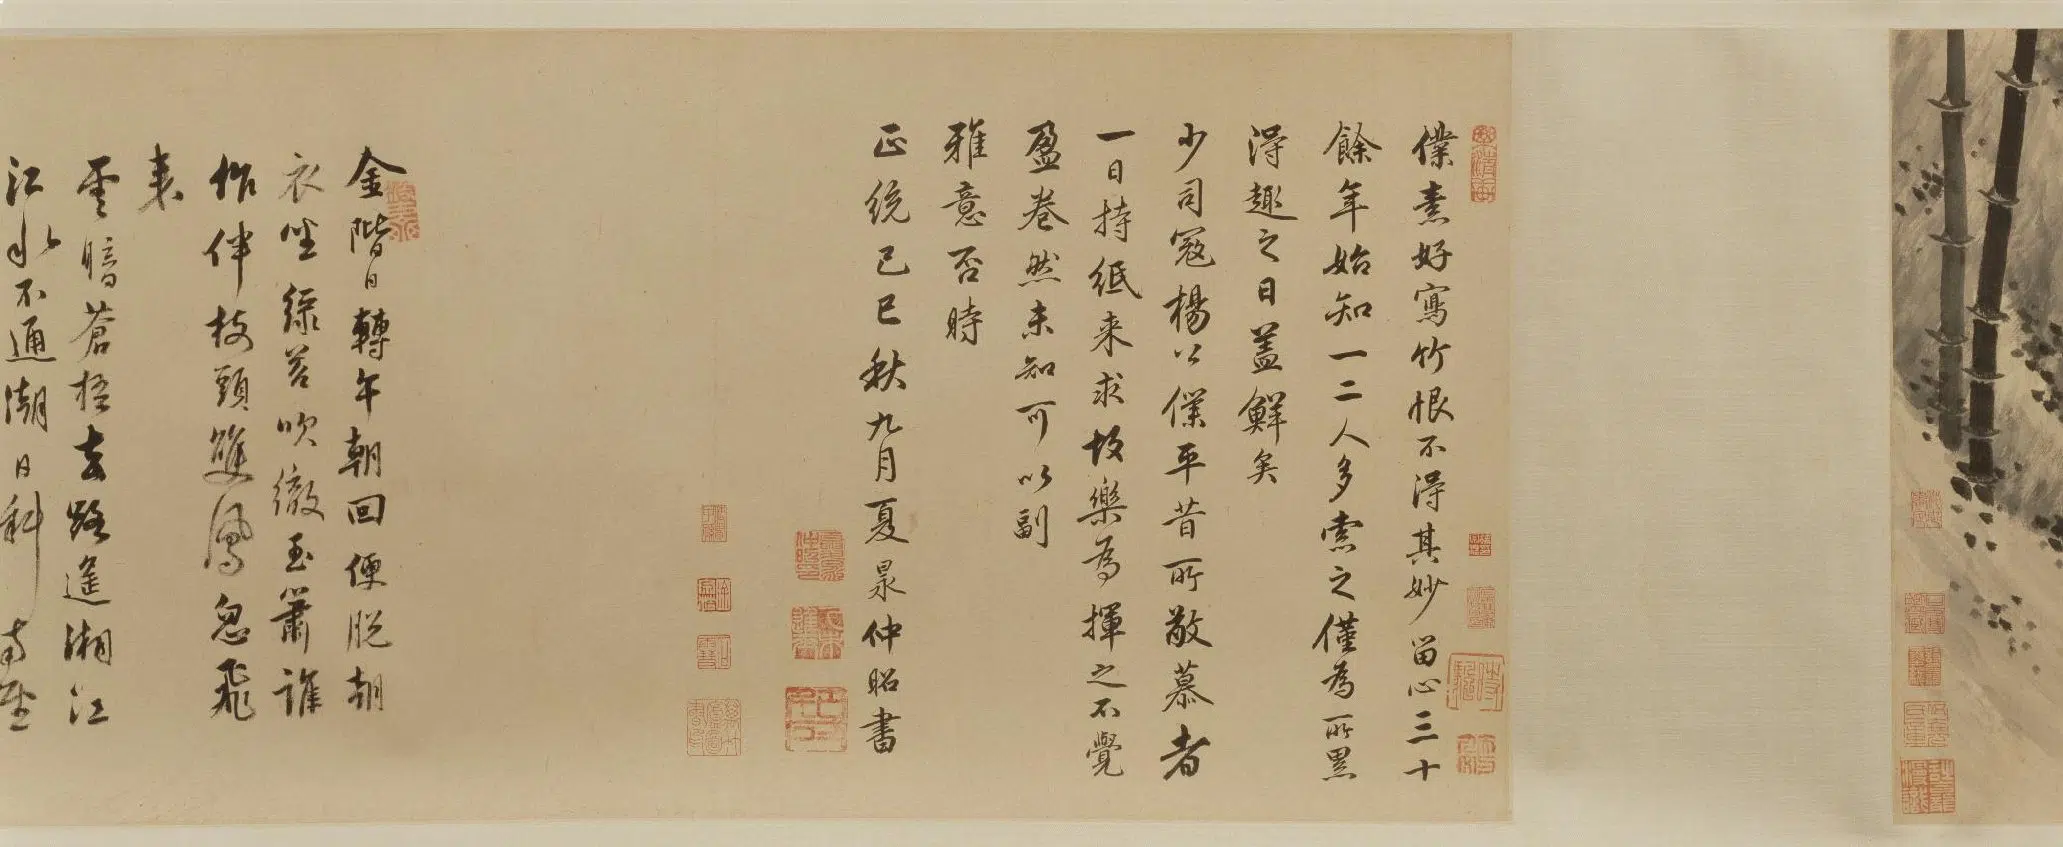 僕素好寫竹恨不得其妙留心三十
餘年始知一二人多索之僅為所黑
得趣之日蓋鮮矣
少司寇楊公僕平昔所敬慕者
一日持紙來求故樂為揮之不覺
盈卷然未知可以副
雅意否時
正統己巳秋九月夏昶仲昭書
金階日轉午朝回便脫朝
衣坐綠苔吹徹玉簫誰
作伴枝頭雙鳳忽飛
來
雲暗蒼梧去路遙湘江
江水不通潮日斜